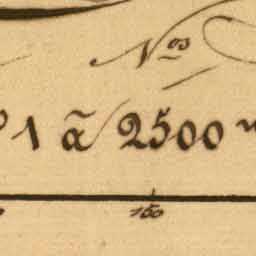 Nos
1 à 2500
150